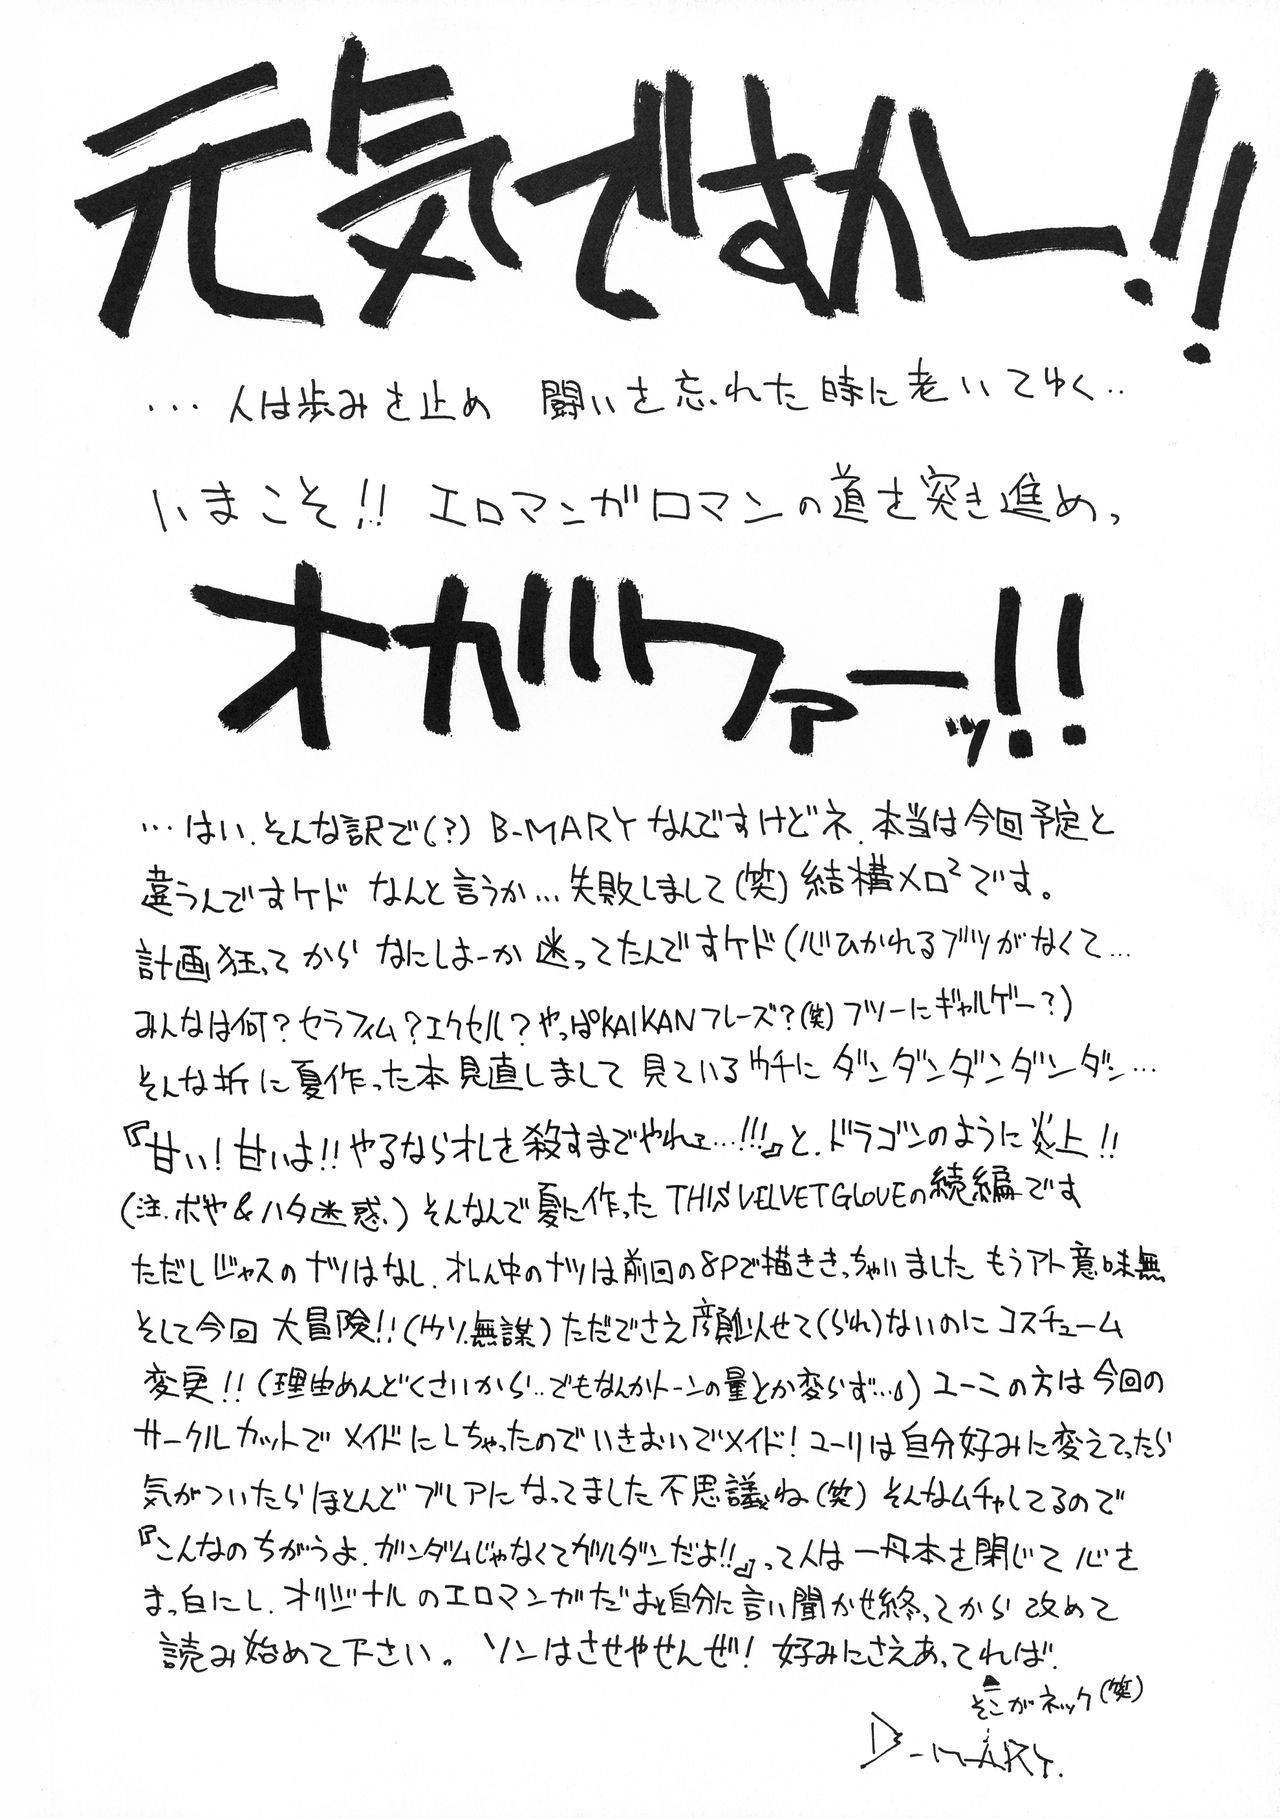 元気ですかー!!
…人は歩みを止め 闘いを忘れた時に老いてゆく‥
いまこそ!! エロマンガロマンの道を突き進めっ
オガワァーッ!!
…はい.そんな訳で(?) B-MARYなんですけどネ.本当は今回予定と
違うんですケド なんと言うか…失敗しまして(笑)結構メロ²です。
計画狂ってから なにしよーか迷ってたんですケド(心ひかれるブツがなくて…
みんなは何?セラフィム?エクセル?やっぱKAIKANフレーズ?(笑)フツーにギャルゲー?)
そんな折に夏作った本見直しまして見ているウチにダンダンダンダンダン…
『甘い!甘いよ!!やるならオレを殺すまでやれェ…!!!』と.ドラゴンのように炎上!!
(注.ボヤ&ハタ迷惑.)そんなんで夏に作ったTHIS VELVET GLOVEの続編です
ただしジャスのナリはなし.オレん中のナリは前回の8Pで描ききっちゃいました もうアト意味無
そして今回 大冒険!!(ウソ.無謀)ただでさえ顔似せて(られ)ないのにコスチューム
変更!!(理由めんどくさいから‥でもなんかトーンの量とか変らず…)ユーミの方は今回の
サークルカットでメイドにしちゃったのでいきおいでメイド!ユーリは自分好みに変えてったら
気がついたらほとんどブレアになってました不思議ね(笑)そんなムチャしてるので
『こんなのちがうよ.ガンダムじゃなくてガルダンだよ!!』って人は一旦本を閉じて心を
まっ白にし.オリジナルのエロマンガだよと自分に言い聞かせ終ってから改めて
読み始めて下さい。ソンはさせやせんぜ!好みにさえあってれば.
そこがネック(笑)
B-MARY.